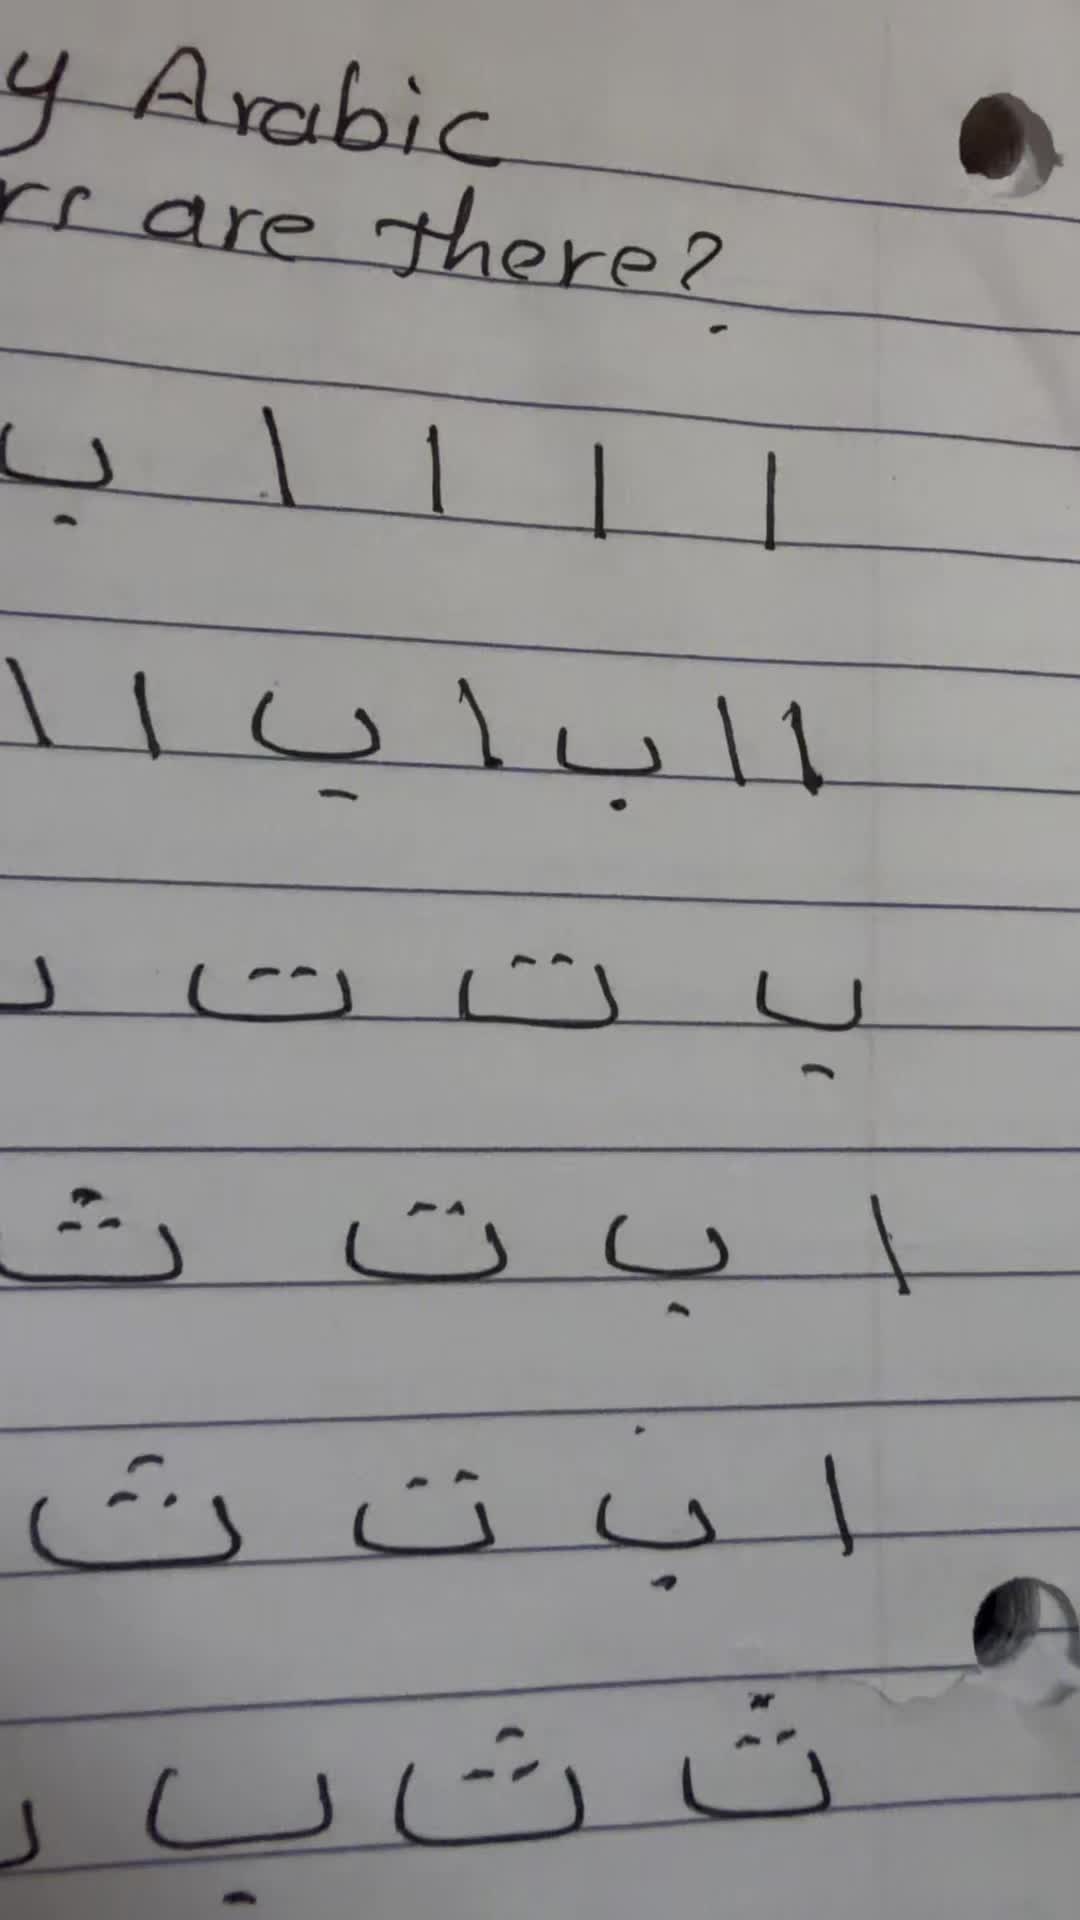 y Arabic
rs are there?
ا ا ا ا ب
ا ا ب ا ب ا ا
ب ت ت
ا ب ت ث
ا ب ت ث
ث ث ب